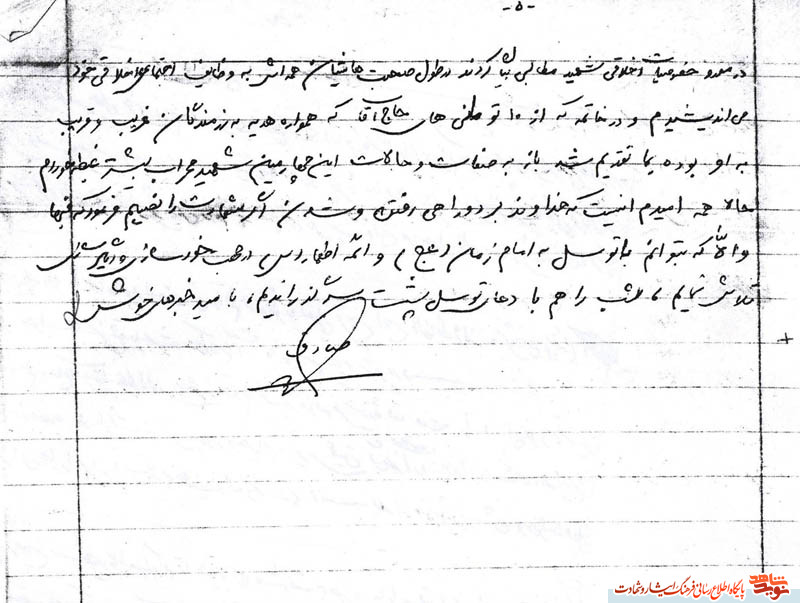 -۵-
در مورد خصوصیات اخلاقی شهید مطالبی بیان کردند در طول صحبت هایشان همه اش به وظایف اجتماعی اخلاقی خود
می اندیشیدم و در خاتمه که از ۱۰ تومانی های حاج آقا که همواره هدیه به رزمندگان غریب و قریب
به او بوده بما تقدیم شد باز به صفات و حالات این چهارمین شهید محراب بیشتر غبطه خوردم
حالا همه امیدم اینست که خداوند بر دوراهی رفتن و شدن اگر شهادت را نصیبم فرمود که
والا که بتوانم با توسل به امام زمان (عج) و ائمه اطهار (س) در جهت خودسازی و
تلاش نمایم، امشب را هم با دعای توسل پشت سر گذراندیم، با امید خبرهای خوش
صادق
نوید شاهد
پایگاه اطلاع رسانی فرهنگ ایثار و شهادت